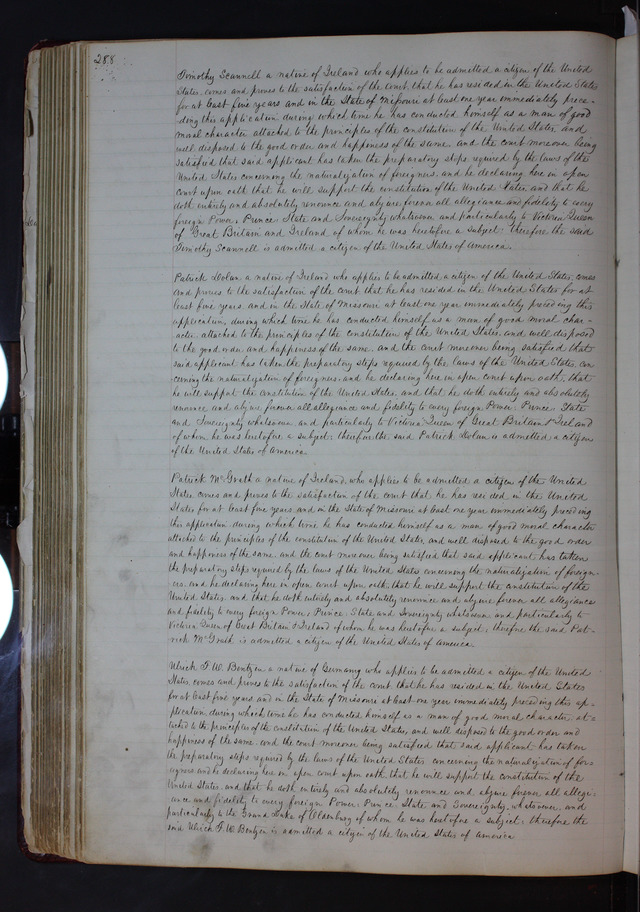 288
Timothy Scannell a native of Ireland who applies to be admitted a citizen of the United
States, comes and proves to the satisfaction of the court that he has resided in the United States
for at least five years and in the State of Missouri at least one year immediately prece-
ding this application during which time he has conducted himself as a man of good
moral character attached to the principles of the constitution of the United States, and
well disposed to the good order and happiness of the same and the court moreover being
satisfied that said applicant has taken the preparatory steps required by the laws of the
United States concerning the naturalization of foreigners, and he declaring here in open
court upon oath that he will support the constitution of the United States and that he
doth entirely and absolutely renounce and abjure forever all allegiance and fidelity to every
foreign Power, Prince State and Sovereignty whatsoever and particularly to Victoria Queen
of Great Britain and Ireland of whom he was heretofore a subject: therefore the said
Timothy Scannell is admitted a citizen of the United States of America.
Patrick Dolan a native of Ireland who applies to be admitted a citizen of the United States, comes
and proves to the satisfaction of the court that he has resided in the United States for at
least five years and in the State of Missouri at least one year immediately preceding this
application, during which time he has conducted himself as a man of good moral char-
acter, attached to the principles of the constitution of the United States, and well disposed
to the good order and happiness of the same, and the court moreover being satisfied that
said applicant has taken the preparatory steps required by the laws of the United States con
cerning the naturalization of foreigners, and he declaring here in open court upon oath, that
he will support the constitution of the United States, and that he doth entirely and absolutely
renounce and abjure forever all allegiance and fidelity to every foreign Power, Prince, State
and Sovereignty whatsoever and particularly to Victoria Queen of Great Britain & Ireland
of whom he was heretofore a subject: therefore the said Patrick Dolan is admitted a citizen
of the United States of America
Patrick McGrath a native of Ireland, who applies to be admitted a citizen of the United
States comes and proves to the satisfaction of the court that he has resided in the United
States for at least five years and in the State of Missouri at least one year immediately preceding
this application during which time he has conducted himself as a man of good moral character
attached to the principles of the constitution of the United States, and well disposed to the good order
and happiness of the same, and the court moreover being satisfied that said applicant has taken
the preparatory steps required by the laws of the United States concerning the naturalization of foreign-
ers and he declaring here in open court upon oath, that he will support the constitution of the
United States, and that he doth entirely and absolutely renounce and abjure forever all allegiance
and fidelity to every foreign Power, Prince, State and Sovereignty whatsoever and particularly to
Victoria Queen of Great Britain & Ireland of whom he was heretofore a subject, therefore the said Pat-
rick McGrath is admitted a citizen of the United States of America
Ulrich F. W. Bentzen a native of Germany who applies to be admitted a citizen of the United
States, comes and proves to the satisfaction of the court that he has resided in the United States
for at least five years and in the State of Missouri at least one year immediately preceding this ap-
plication during which time he has conducted himself as a man of good moral character at-
tached to the principles of the constitution of the United States, and well disposed to the good order and
happiness of the same and the court moreover being satisfied that said applicant has taken
the preparatory steps required by the laws of the United States concerning the naturalization of for-
eigners and he declaring here in open court upon oath, that he will support the constitution of the
United States and that he doth entirely and absolutely renounce and abjure forever all allegi-
ance and fidelity to every foreign Power, Prince State and Sovereignty, whatsoever and
particularly to the Grand Duke of Oldenburg of whom he was heretofore a subject, therefore the
said Ulrich F. W. Bentzen is admitted a citizen of the United States of America